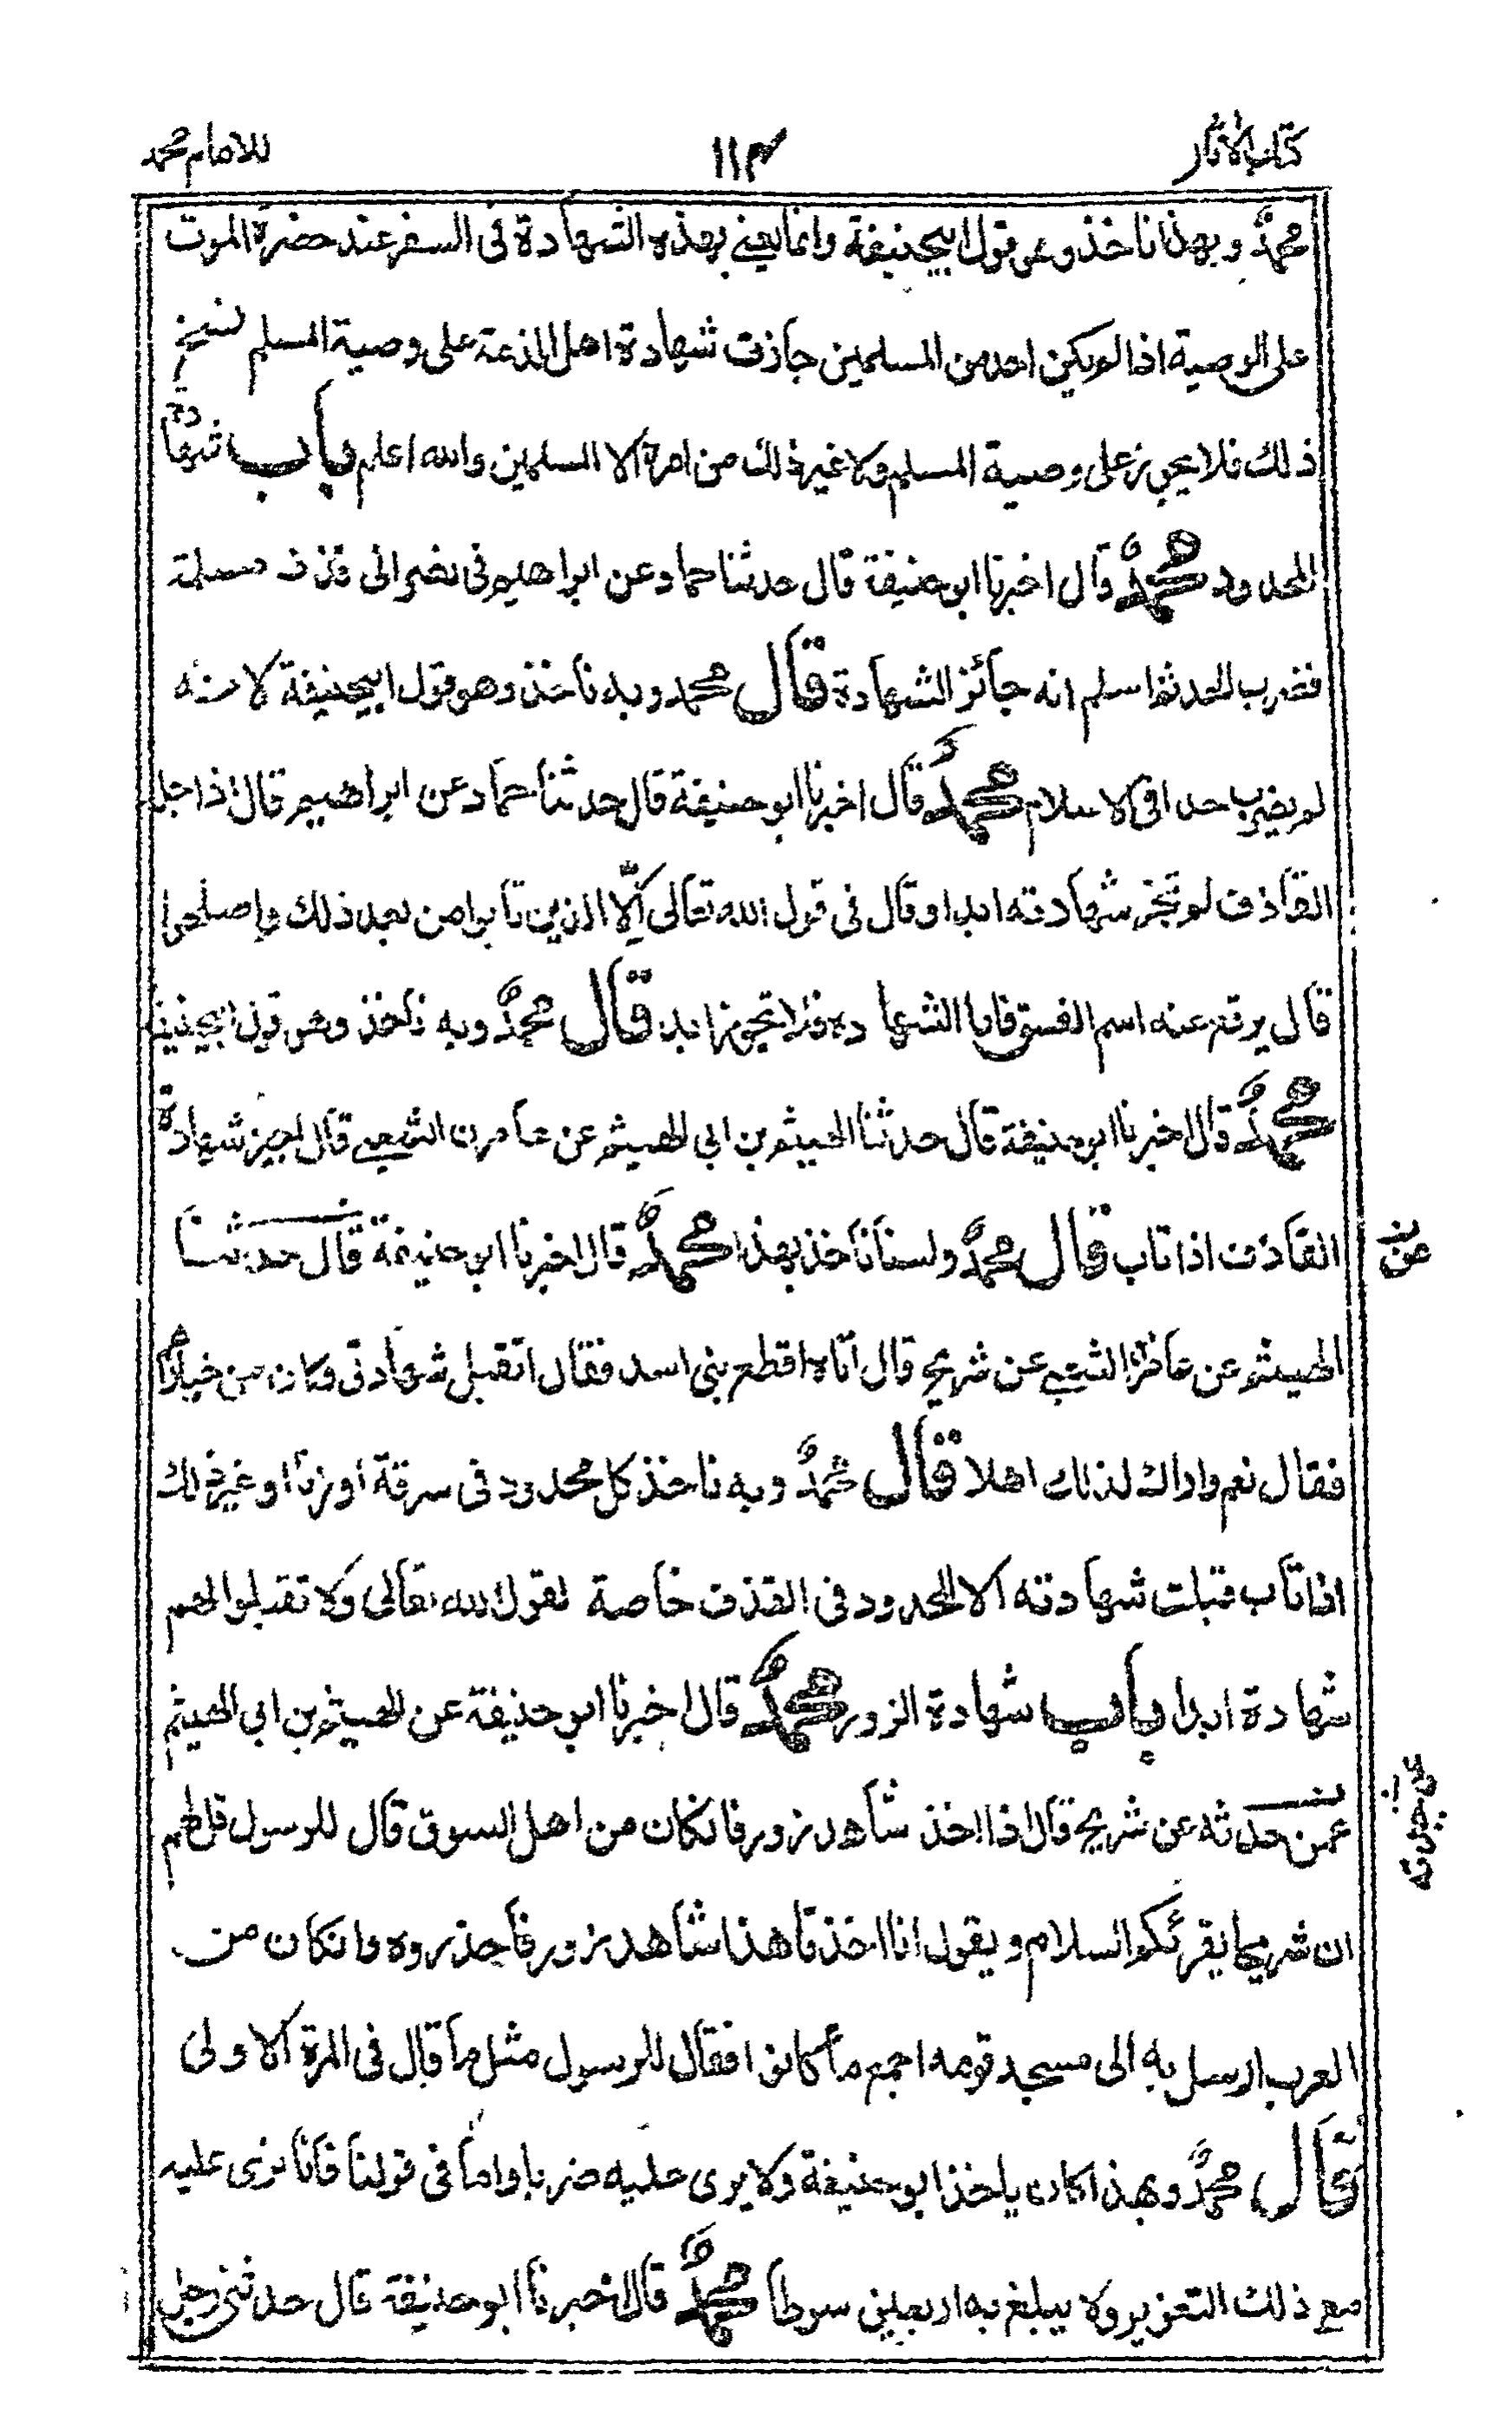 كتاب الاثار ١١٣ للامام محمد
محمد وبهذا ناخذ وهو قول ابيحنيفة وانما يعني بهذه الشهادة فى السفر عند حضرة الموت
على الوصية اذا لم يكن احد من المسلمين جازت شهادة اهل الذمة على وصية المسلم نسخ
ذلك فلا يجوز على وصية المسلم ولا غير ذلك من امره الا المسلمين والله اعلم باب شهادة
المحدود محمد قال اخبرنا ابو حنيفة قال حدثنا حماد عن ابراهيم فى نصرانى قذف مسلمة
فضرب الحد ثم اسلم انه جائز الشهادة قال محمد وبه ناخذ وهو قول ابيحنيفة لانه
لم يضرب حدا فى الاسلام محمد قال اخبرنا ابو حنيفة قال حدثنا حماد عن ابراهيم قال اذا جلد
القاذف لم تجز شهادته ابدا وقال فى قول الله تعالى الا الذين تابوا من بعد ذلك واصلحوا
قال يرفع عنه اسم الفسق فاما الشهادة فلا تجوز ابدا قال محمد وبه ناخذ وهو قول ابيحنيفة
محمد قال اخبرنا ابو حنيفة قال حدثنا الهيثم بن ابى الهيثم عن عامر ن الشعبي قال اجيز شهادة
القاذف اذا تاب قال محمد ولسنا ناخذ بهذا محمد قال اخبرنا ابو حنيفة قال حدثنا
عن
الهيثم عن عامر الشعبي عن شريح قال اتاه اقطع بنى اسد فقال اتقبل شهادتى وكان من خيارهم
فقال نعم واراك لذلك اهلا قال محمد وبه ناخذ كل محدود فى سرقة او زنا او غير ذلك
اذا تاب قبلت شهادته الا المحدود فى القذف خاصة لقول الله تعالى ولا تقبلوا لهم
شهادة ابدا باب شهادة الزور محمد قال اخبرنا ابو حنيفة عن الهيثم بن ابى الهيثم
عمن حدثه عن شريح قال اذا اخذ شاهد زور فانكان من اهل السوق قال للرسول قل لهم
ان شريحا يقرئكم السلام ويقول انا اخذنا هذا شاهد زور فاحذروه وانكان من
العرب ارسل به الى مسجد قومه اجمع ما كانوا فقال للرسول مثل ما قال فى المرة الاولى
قال محمد وبهذا كان ياخذ ابو حنيفة ولا يرى عليه ضربا واما فى قولنا فانا نرى عليه
مع ذلك التعزير ولا يبلغ به اربعين سوطا محمد قال اخبرنا ابو حنيفة قال حدثنى رجل